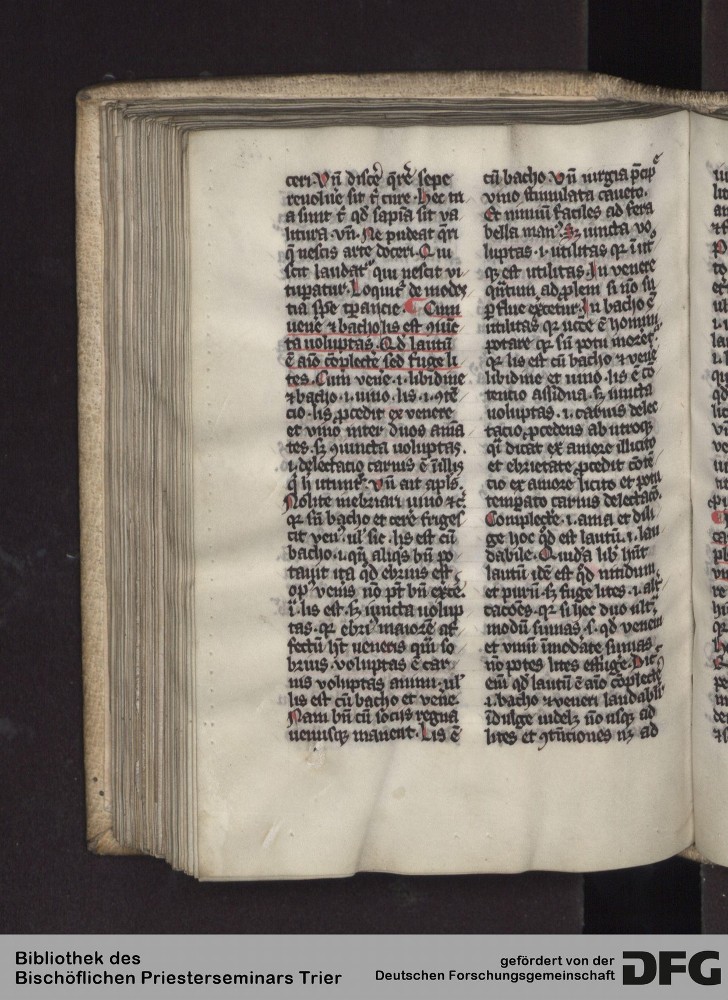 ceri. Vn̄ discē q̄rē sepe
reuolue sit t̄ cure. Hec tn̄
a sunt t̄ qd̄ sapīa sit va
litura. vn̄. Ne pudeat q̄ri
q̄ nescis arte doceri. Qui
scit laudatᷣ qui nescit vi
tupatur. Loquitᷣ de modes
tia
Cum
uenē ⁊ bacho lis est ꝯiūc
ta uoluptas. Qd̄ lautū
ē aīo cōplecte sed fuge li
tes. Cum venē .i. libidine
⁊ bacho .i. uino. lis .i. ꝯtē
cio. lis ꝓcedit ex venere
et vino inter duos ama
tes. sꝫ ꝯiuncta uoluptas.
.i. delectacio carnis ē ī illis
q̄ h̄ utuntᷣ. vn̄ ait apl̄s.
Nolite inebriari uino ⁊c̄.
qꝛ sn̄ bacho et cerē friges
cit ven᾽. ul᾽ sic. lis est cū
bacho .i. qn̄ aliqs bn̄ po
tauit ita qd̄ ebrius est.
op᾽ venis nō pt̄ bn̄ exce.
lis est. sꝫ iuncta uolup
tas. qꝛ ebri᾽ maiorē af
fectū h̄t ueneris quā so
brius. voluptas ē car
nis voluptas animi. ul᾽
lis est cū bacho et vene.
Nam bn̄ cū sociis regna
uenusqꝫ manent. Lis ē
cū bacho. vn̄ uirgīa
vino stimulata caueto.
Et nimiū faciles ad fera
bella man᾽. Sꝫ iuncta vo
luptas .i. utilitas qꝛ
qꝫ est utilitas. In venere
qn̄tum ad ꝓlem si nō su
ꝑflue exc̄etur. In bacho ē
utilitas qꝛ
potare qꝛ sn̄ potu
qꝛ lis est cū bacho ⁊ venē
libidine et uino. lis .i. cō
tentio assidua. sꝫ iuncta
uoluptas .i. carnis delec
tacio ꝓcedens ab utroqꝫ
q̄i dicat ex amore illicito
et ebrietate ꝓcedit cōtē
cio ex amore licito et potu
temꝑato carnis delectacō.
Complecte .i. ama et dili
ge hoc qd̄ est lautū .i. lau
dabile. Quidā lib᾽ hn̄t
lautū idē est qd̄ nitidum
et purū. sꝫ fuge lites .i. alt᾽
cacōes. qꝛ si hec duo ultᷓ
modū sumas .s. qd̄ venem
et vinū īmodate sumas
nō potes lites effugē. Dic
em̄ qd̄ lautū ē aīo cōplecte
.i. bacho ⁊ veneri laudabilr̄
īdulge uidelꝫ nō usqꝫ ad
lites et ꝯtn̄tiones nꝫ ad
Bibliothek des
Bischöflichen Priesterseminars Trier
gefördert von der
Deutschen Forschungsgemeinschaft
DFG